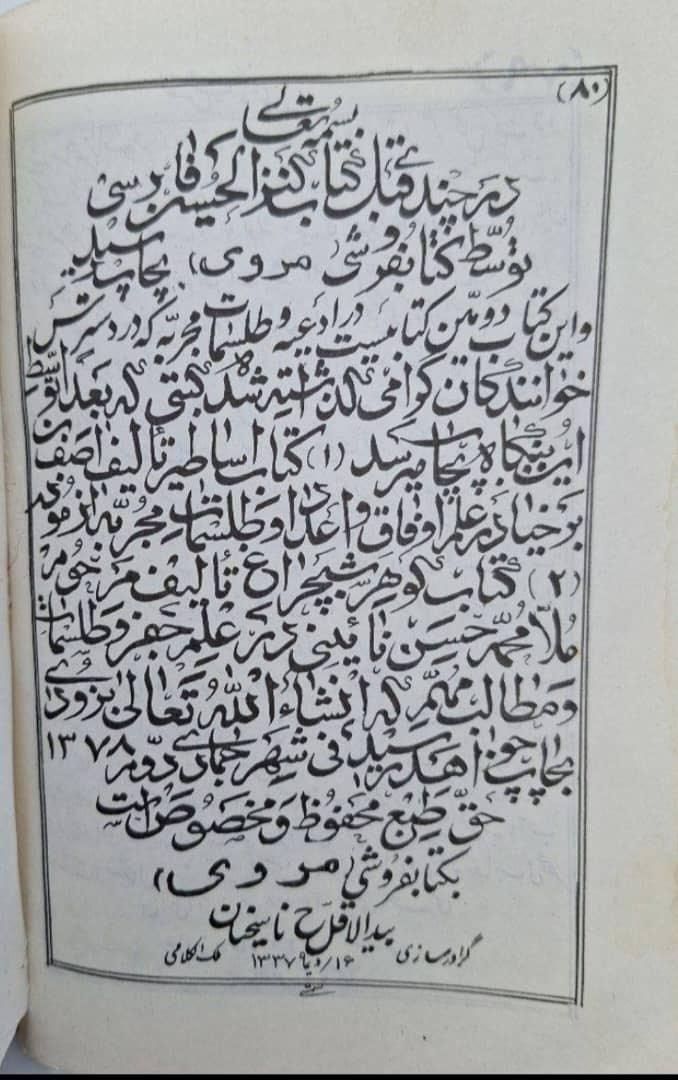 (۸۰)
بسمه تعالی
در چندی قبل کتاب کنز الحسین فارسی
توسط کتابفروشی (مروی) بچاپ رسید و
و این کتاب دومین کتابیست در ادعیه و طلسمات مجربه که در دسترس
خوانندگان گرامی گذاشته شده کتبی که بعداً توسط
این بنگاه بچاپ میرسد (۱) کتاب اساطیر تألیف آصف بن
برخیا در علم اوفاق و اعداد و طلسمات مجربه آزموده
(۲) کتاب گوهر شبچراغ تألیف مرحوم
ملا محمد حسن نائینی در علم جفر و طلسمات
و مطالب مهم که انشاء الله تعالی بزودی
بچاپ خواهد رسید فی شهر جمادی دوم ۱۳۷۸
حق طبع محفوظ و مخصوص است
بکتابفروشی (مروی)
بید الاقل ح ناسخیان
گراورسازی ۱۳۳۷